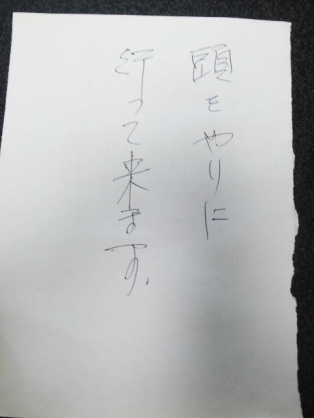 頭をやりに
行って来ます。